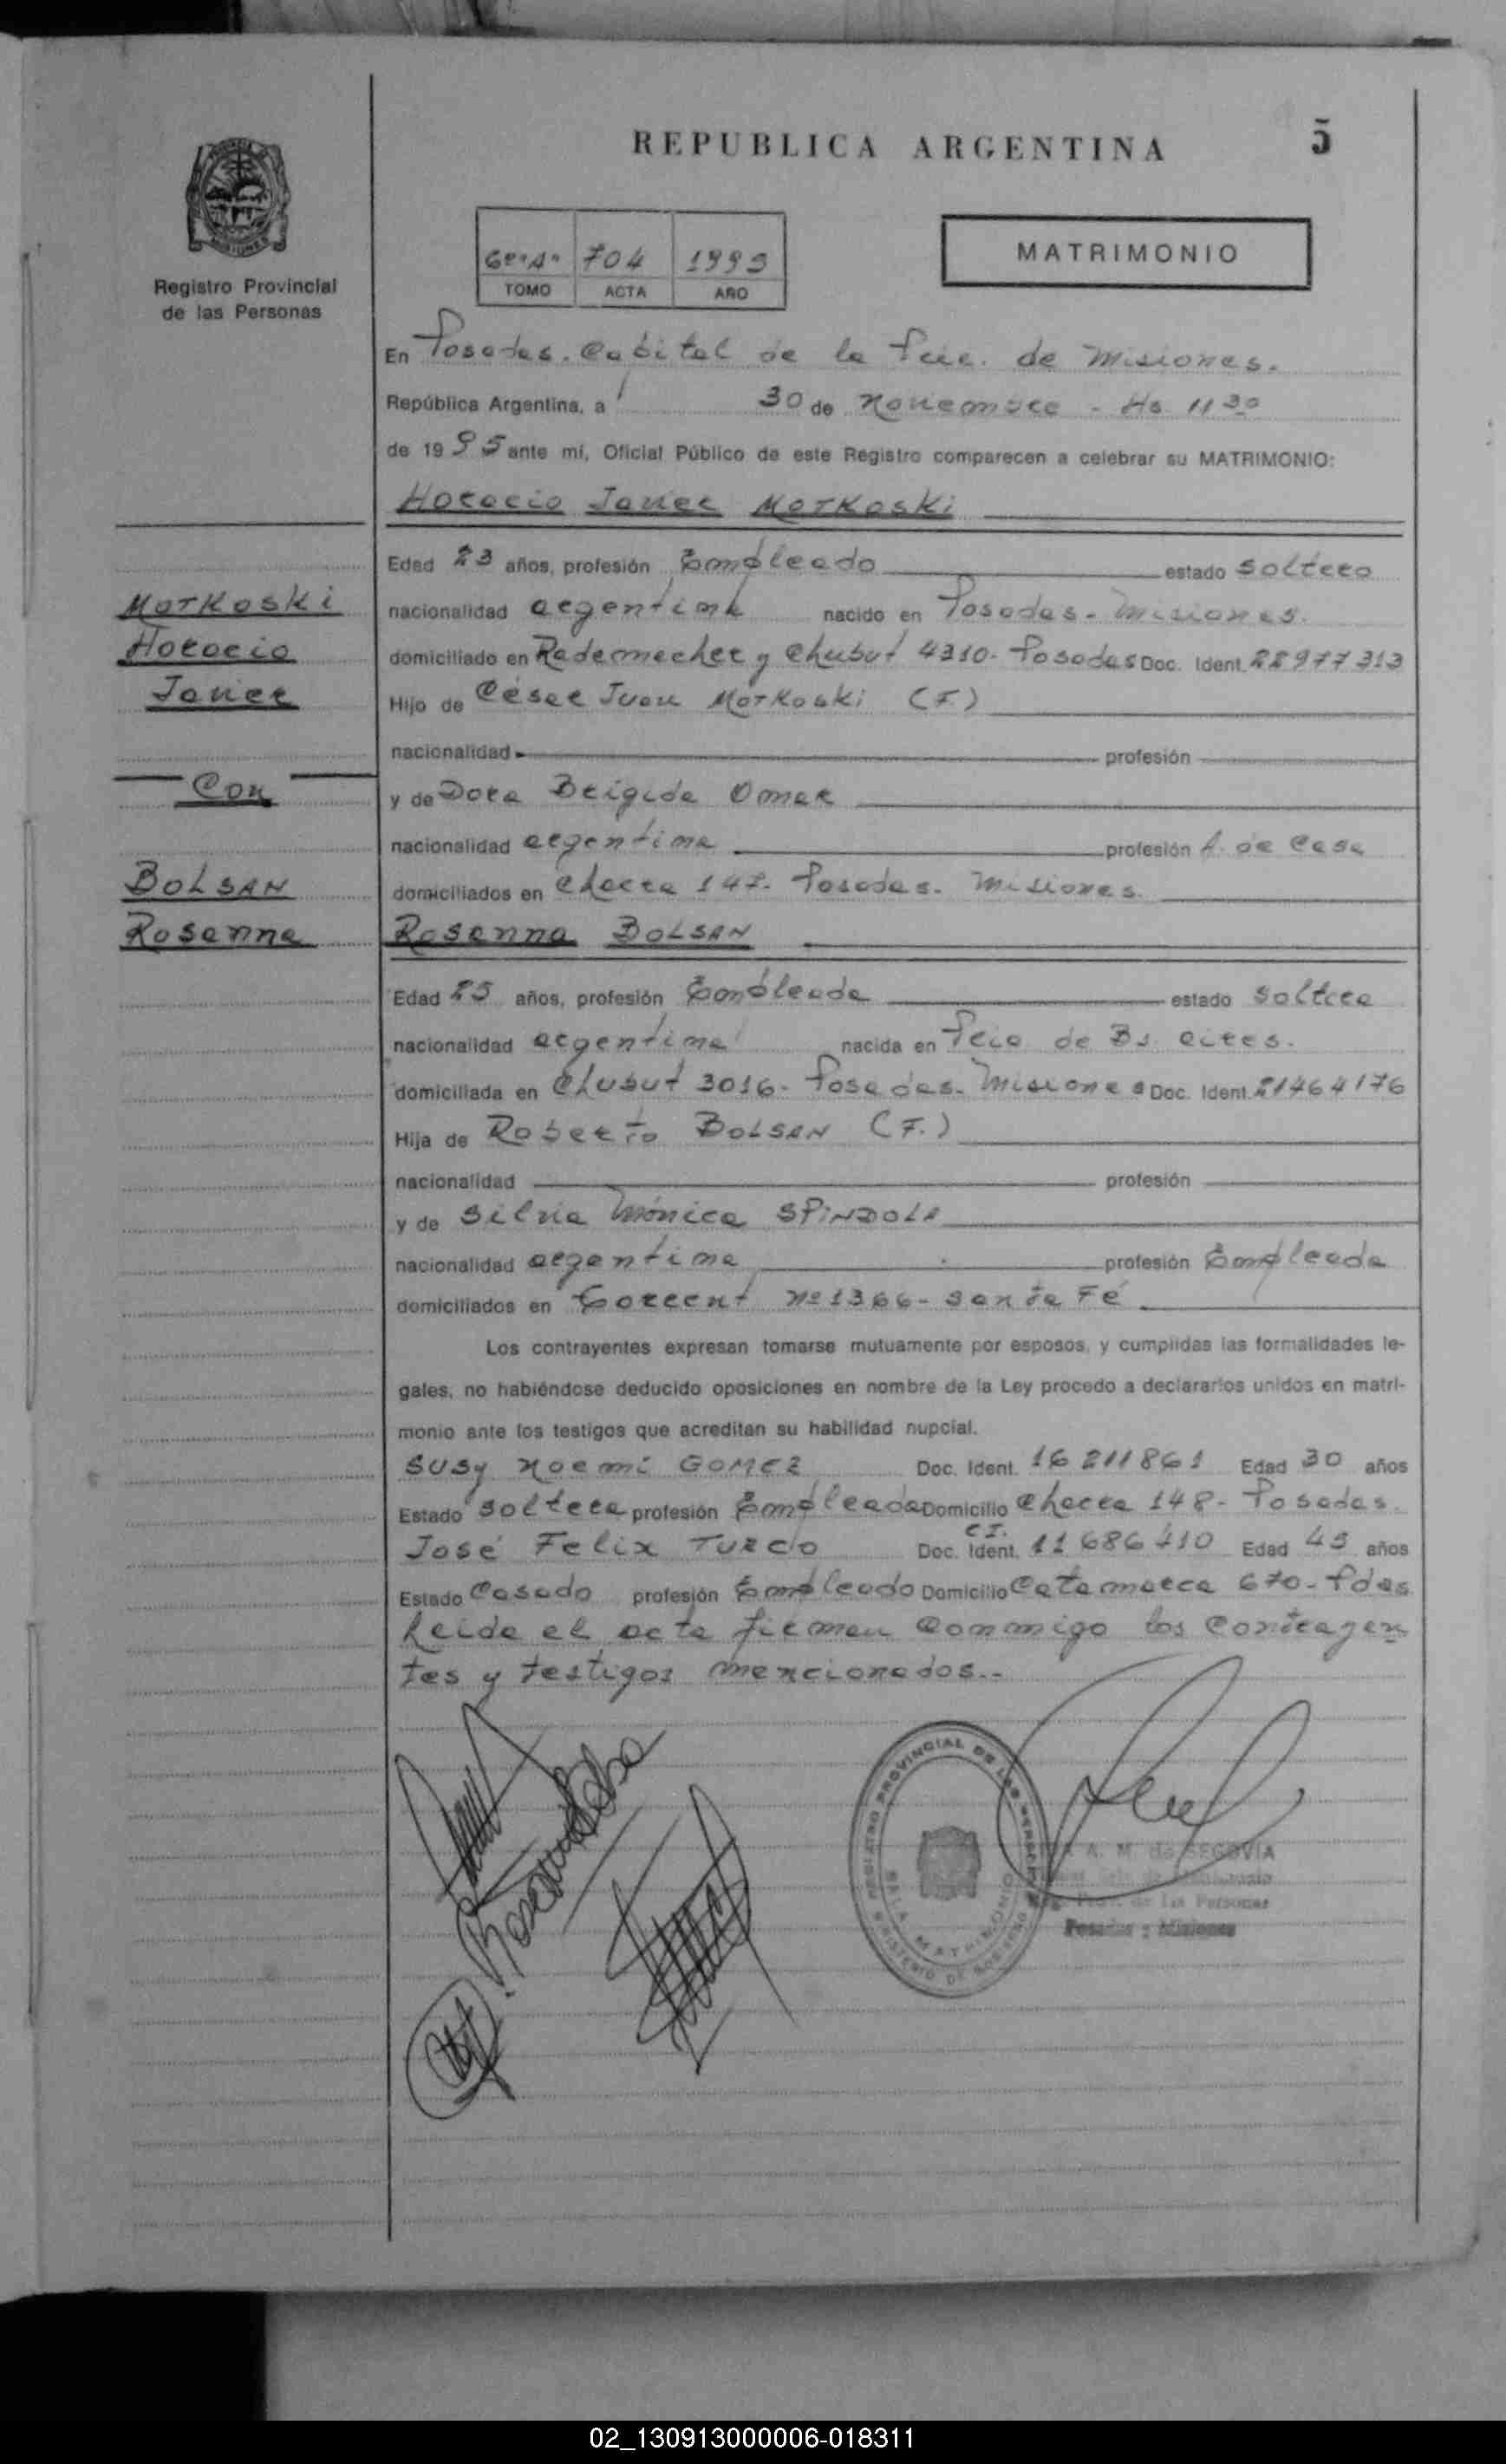 REPUBLICA ARGENTINA
5
704 1995
TOMO ACTA AÑO
MATRIMONIO
Registro Provincial
de las Personas
En Posadas. Capital de la Pcia. de Misiones.
República Argentina, a 30 de Noviembre - Hs 11 30
de 1995 ante mí, Oficial Público de este Registro comparecen a celebrar su MATRIMONIO:
Horacio Javier MORKOSKI
Edad 23 años, profesión Empleado estado soltero
nacionalidad argentina nacido en Posadas - Misiones.
domiciliado en Rademacher y Chubut 4310 - Posadas Doc. Ident. 22977313
Hijo de César Juan MORKOSKI (F.)
nacionalidad profesión
y de Dora Brígida OMAR
nacionalidad argentina profesión A. de Casa
domiciliados en Chacra 147 - Posadas. Misiones.
Rosanna BOLSAN
Edad 25 años, profesión Empleada estado soltera
nacionalidad argentina nacida en Pcia de Bs. aires.
domiciliada en Chubut 3016 - Posadas - Misiones Doc. Ident. 21464176
Hija de Roberto BOLSAN (F.)
nacionalidad profesión
y de Silvia Mónica SPINDOLA
nacionalidad argentina profesión Empleada
domiciliados en Nº 1366 - Santa Fé
Los contrayentes expresan tomarse mutuamente por esposos, y cumplidas las formalidades le-
gales, no habiéndose deducido oposiciones en nombre de la Ley procedo a declararlos unidos en matri-
monio ante los testigos que acreditan su habilidad nupcial.
Susy Noemí GOMEZ Doc. Ident. 16 211861 Edad 30 años
Estado soltera profesión Empleada Domicilio Chacra 148 - Posadas.
José Felix TURCIO C.I. Doc. Ident. 11 686 410 Edad 45 años
Estado Casado profesión Empleado Domicilio Catamarca 670 - Pdas.
Leída el acta firman conmigo los contrayen
tes y testigos mencionados.-
MORKOSKI
Horacio
Javier
Con
BOLSAN
Rosanna
REGISTRO PROVINCIAL DE LAS PERSONAS
MINISTERIO DE GOBIERNO
SALA MATRIMONIO
A. M. de SEGOVIA
de las Personas
Posadas - Misiones
02_130913000006-018311